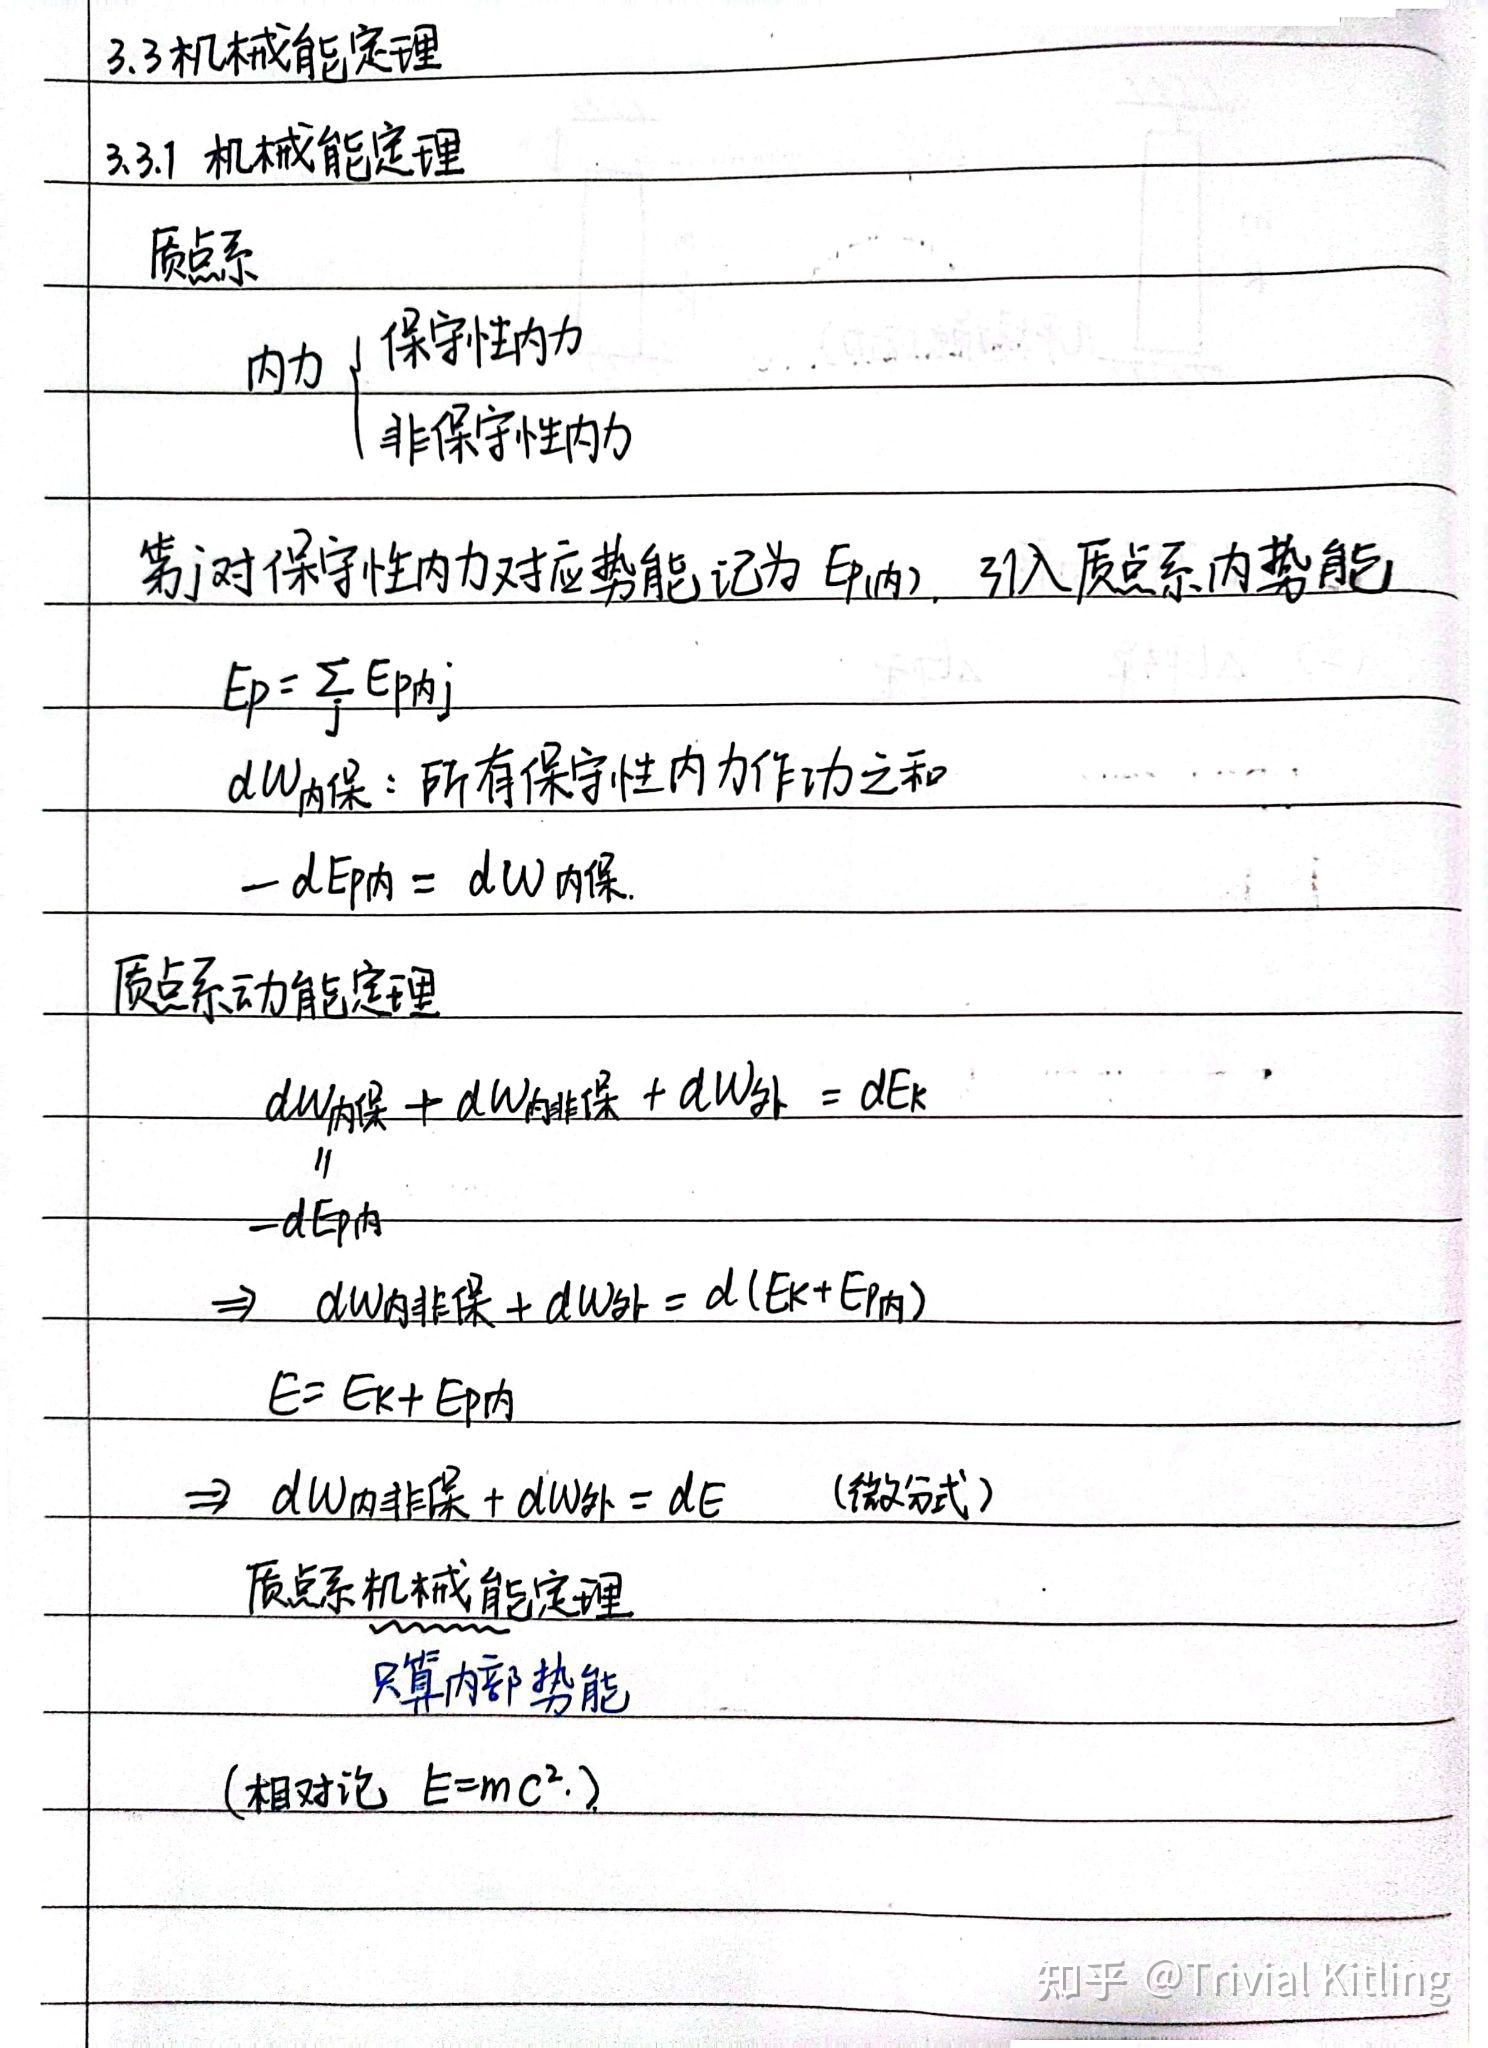 3.3 机械能定理
3.3.1 机械能定理
质点系
内力 { 保守性内力
非保守性内力
第j对保守性内力对应势能记为 Ep(内), 引入质点系内势能
Ep = Σj Ep内j
dW内保: 所有保守性内力作功之和
-dEp内 = dW内保.
质点系动能定理
dW内保 + dW内非保 + dW外 = dEk
=
-dEp内
⇒ dW内非保 + dW外 = d(Ek+Ep内)
E = Ek + Ep内
⇒ dW内非保 + dW外 = dE (微分式)
质点系机械能定理
只算内部势能
(相对论 E=mc².)
知乎 @Trivial Kitling